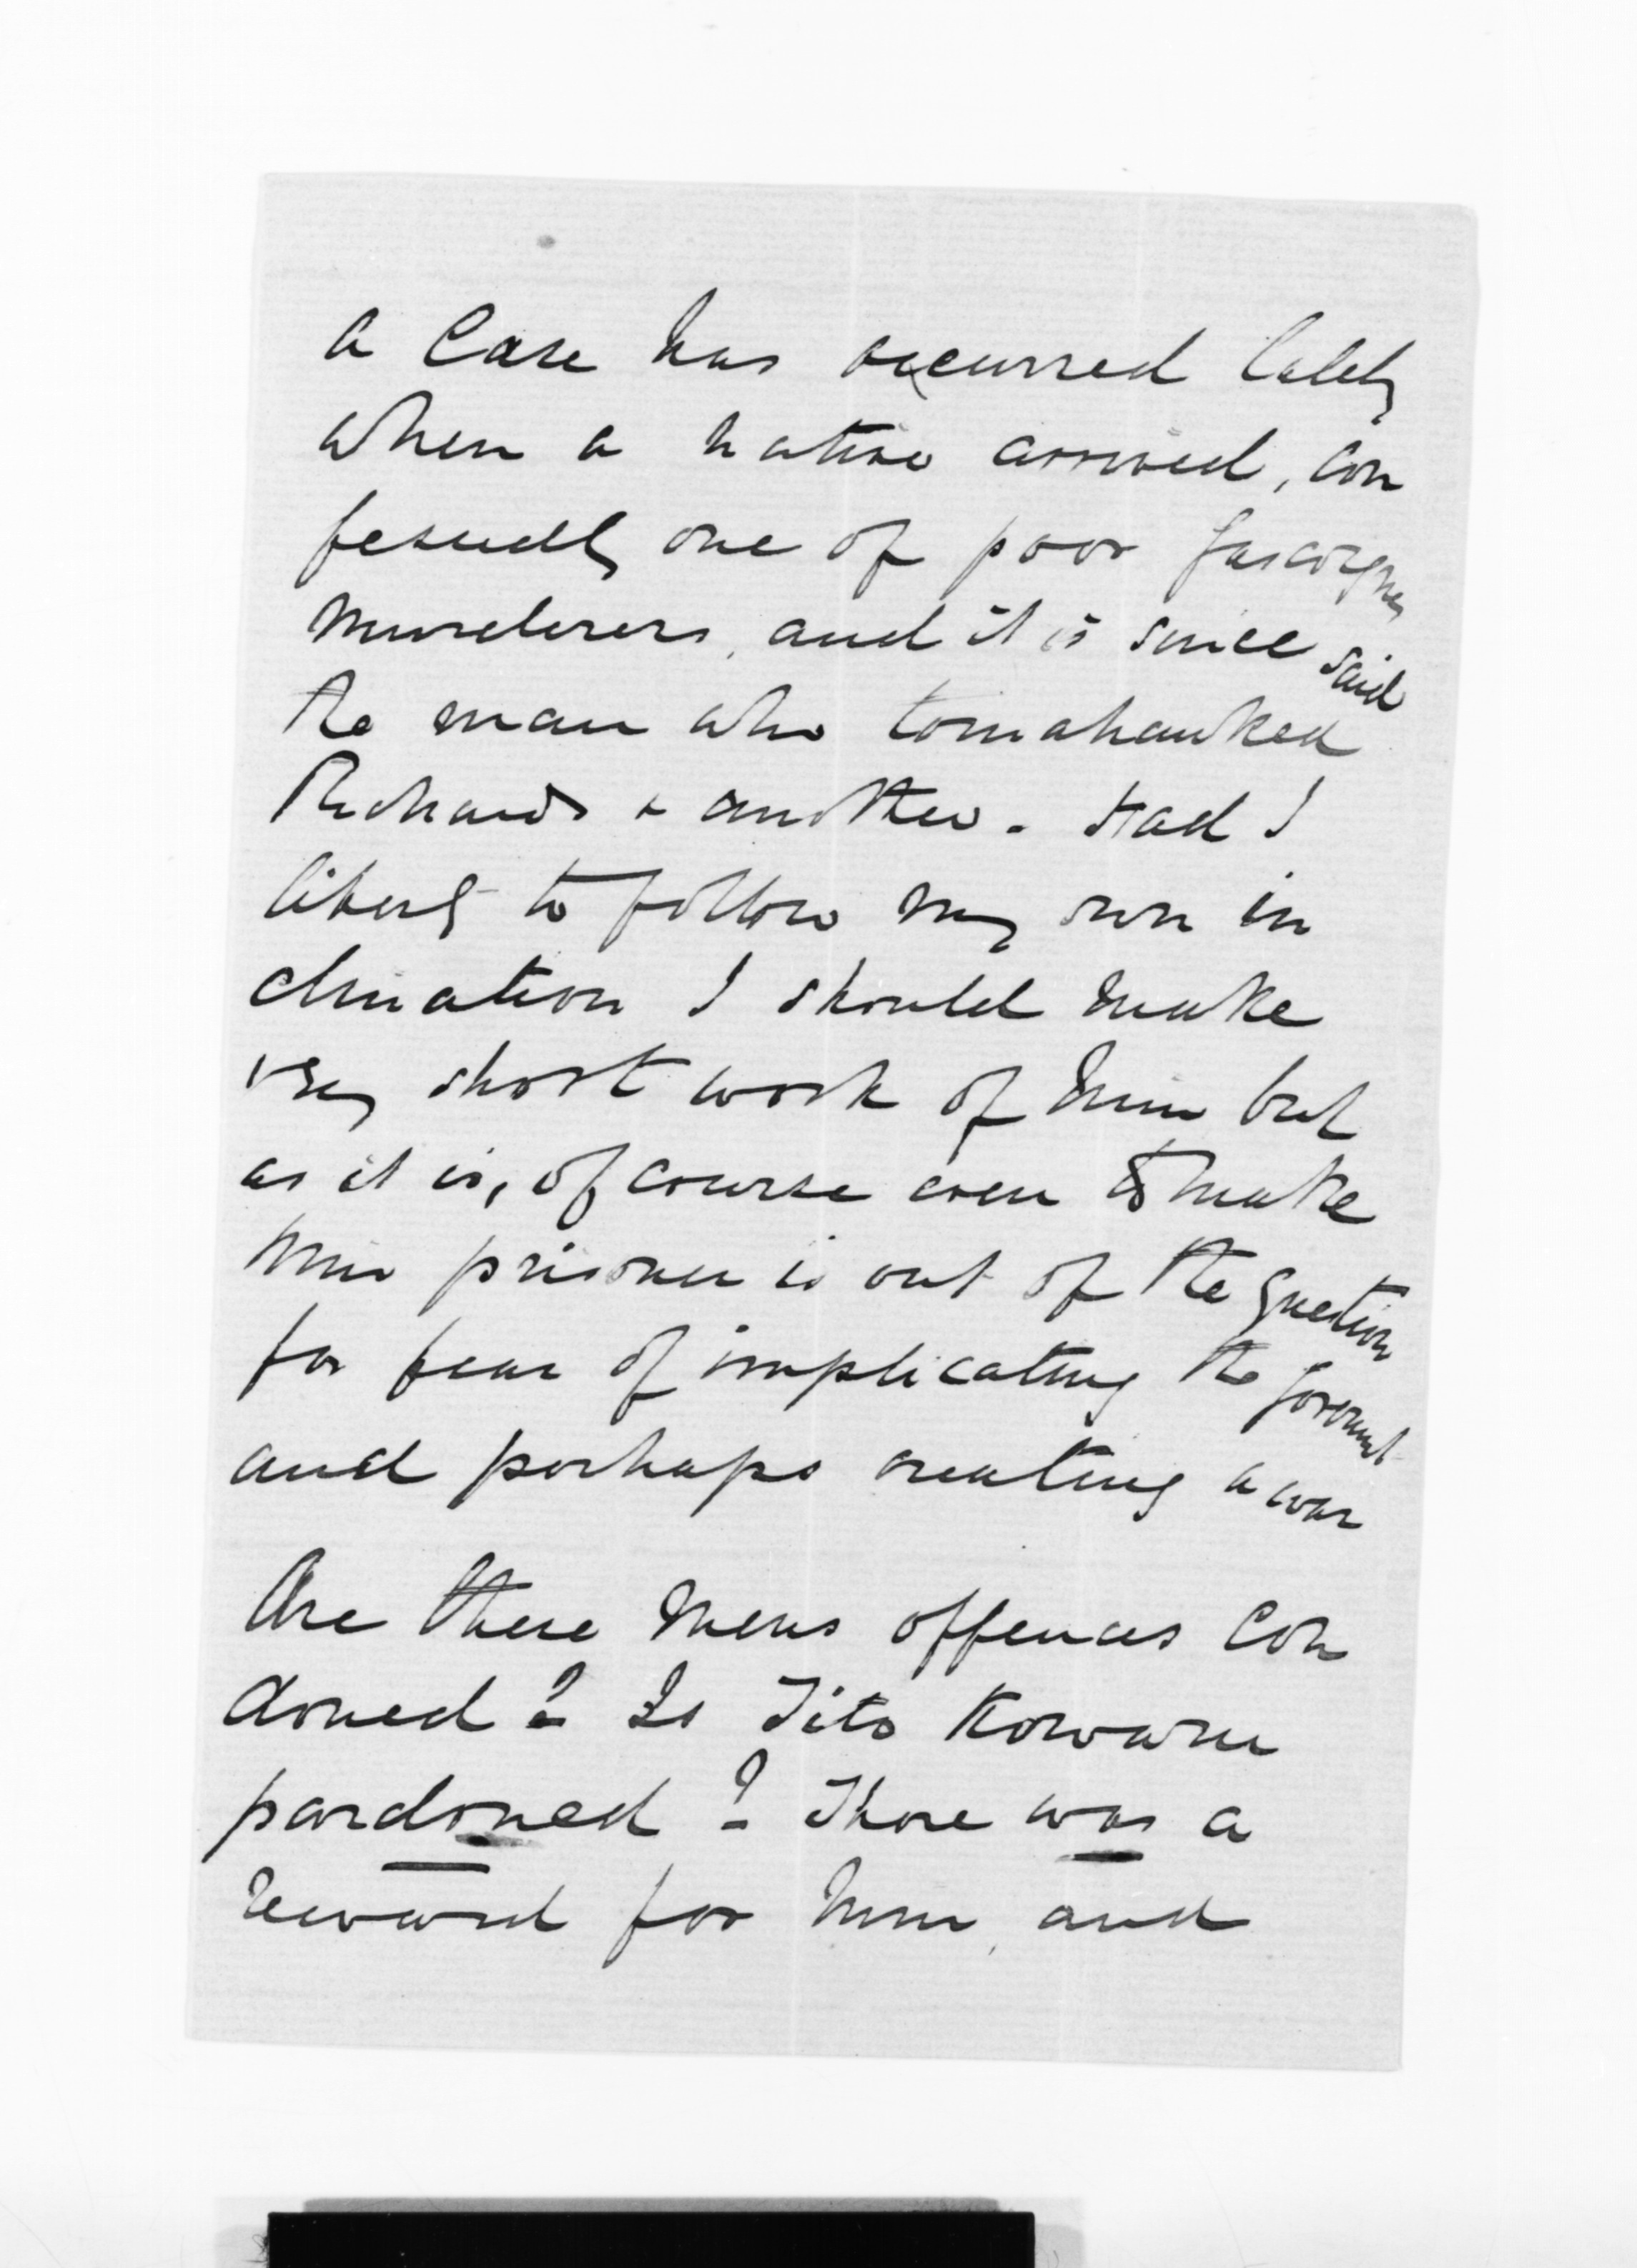 A case has occurred lately
when a native arrived, con
fessedly one of poor Gascoignes
murderers, and it is since said
the man who tomahawked
Richards & another. Had I
liberty to follow my own in
clination I should make
very short work of him but
as it is, of course even to make
him prisoner is out of the question
for fear of implicating the Governmt
and perhaps creating a war
Are these mens offences con
doned? Is Tito Kowaru
pardoned? There was a
reward for him, and